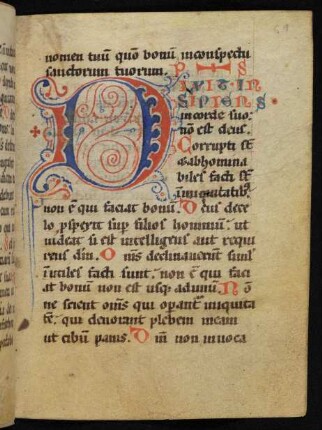 nomen tuū quō bonū inconspectu
sanctorum tuorum.
DIXIT IN
SIPIENS
incorde suo:
nō est deus.
Corrupti sē
& abhomina
biles facti sē
in iniquitatib;
non ē qui faciat bonū. Deus dece
lo ꝓspexit sup filios hominū. ut
uideat si est intelligens aut requi
rens dm̄. Omīs declinauerunt simł
inutiles facti sunt. non ē qui faci
at bonū non est usq; adunū. No
ne scient om̄s qui operant̄ iniquita
tē. qui deuorant plebem meam
ut cibū panis. Dm̄ non inuoca